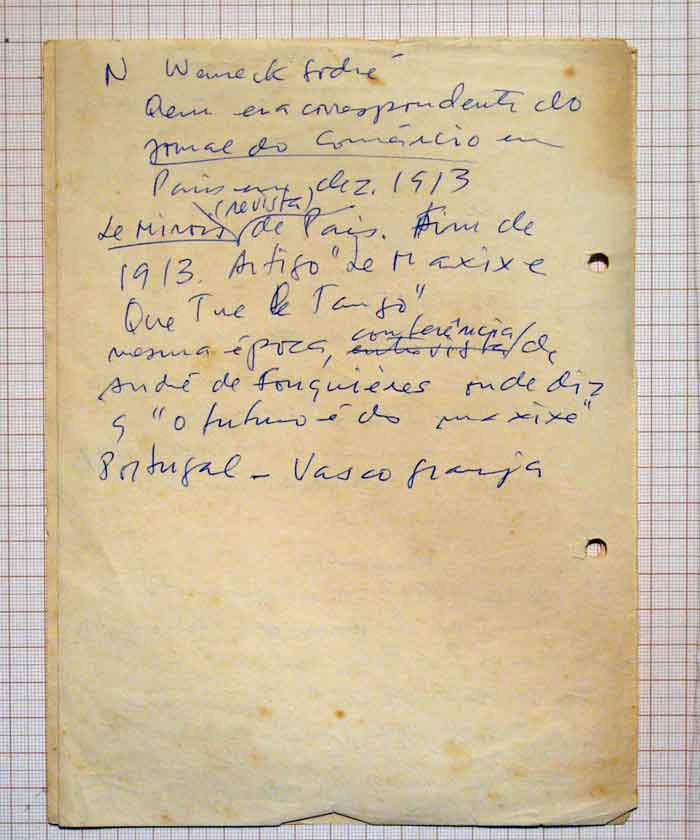 N Werneck Sodré
Quem era correspondente do
Jornal do Comércio em
Paris em dez. 1913
(revista)
Le Miroir de Paris. Fim de
1913. Artigo "Le Maxixe
Que Tue le Tango"
mesma época, entrevista conferência/de
André de Fouquières onde diz
q "o futuro é do maxixe"
Portugal - Vasco Granja